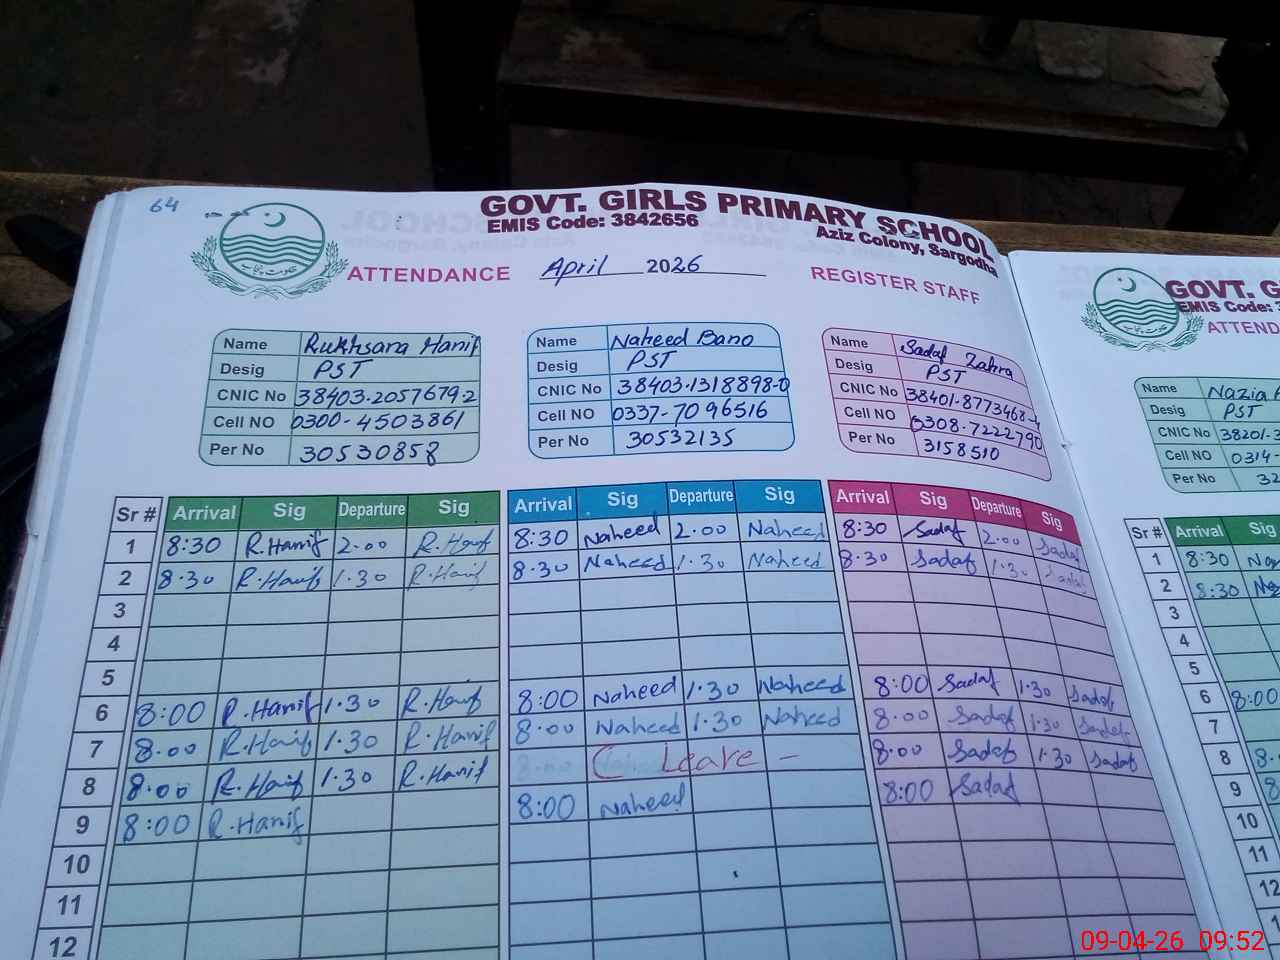 64
GOVT. GIRLS PRIMARY SCHOOL
EMIS Code: 3842656
Aziz Colony, Sargodha
ATTENDANCE April 2026 REGISTER STAFF
Name Rukhsana Hanif
Desig PST
CNIC No 38403-2057679-2
Cell NO 0300-4503861
Per No 30530858
Name Naheed Bano
Desig PST
CNIC No 38403-1318898-0
Cell NO 0337-7096516
Per No 30532135
Name Sadaf Zahra
Desig PST
CNIC No 38401-8773468-
Cell NO 0308-7222790
Per No 3158510
Sr # Arrival Sig Departure Sig Arrival Sig Departure Sig Arrival Sig Departure Sig
1 8:30 R.Hanif 2.00 R.Hanif 8:30 Naheed 2.00 Naheed 8:30 Sadaf 2.00 Sadaf
2 8.30 R.Hanif 1.30 R.Hanif 8:30 Naheed 1.30 Naheed 8:30 Sadaf 1.30 Sadaf
3
4
5
6 8:00 R.Hanif 1.30 R.Hanif 8:00 Naheed 1.30 Naheed 8:00 Sadaf 1.30 Sadaf
7 8.00 R.Hanif 1.30 R.Hanif 8.00 Naheed 1.30 Naheed 8.00 Sadaf 1.30 Sadaf
8 8.00 R.Hanif 1.30 R.Hanif C Leave - 8.00 Sadaf 1.30 Sadaf
9 8:00 R.Hanif 8:00 Naheed 8:00 Sadaf
10
11
12
GOVT. G
EMIS Code: 
ATTEND
Name Nazia
Desig PST
CNIC No 38201-3
Cell NO 0314-
Per No 32
Sr # Arrival Sig
1 8:30
2 8:30
3
4
5
6 8:00
7
8 8.
9 8
10
11
12
09-04-26 09:52